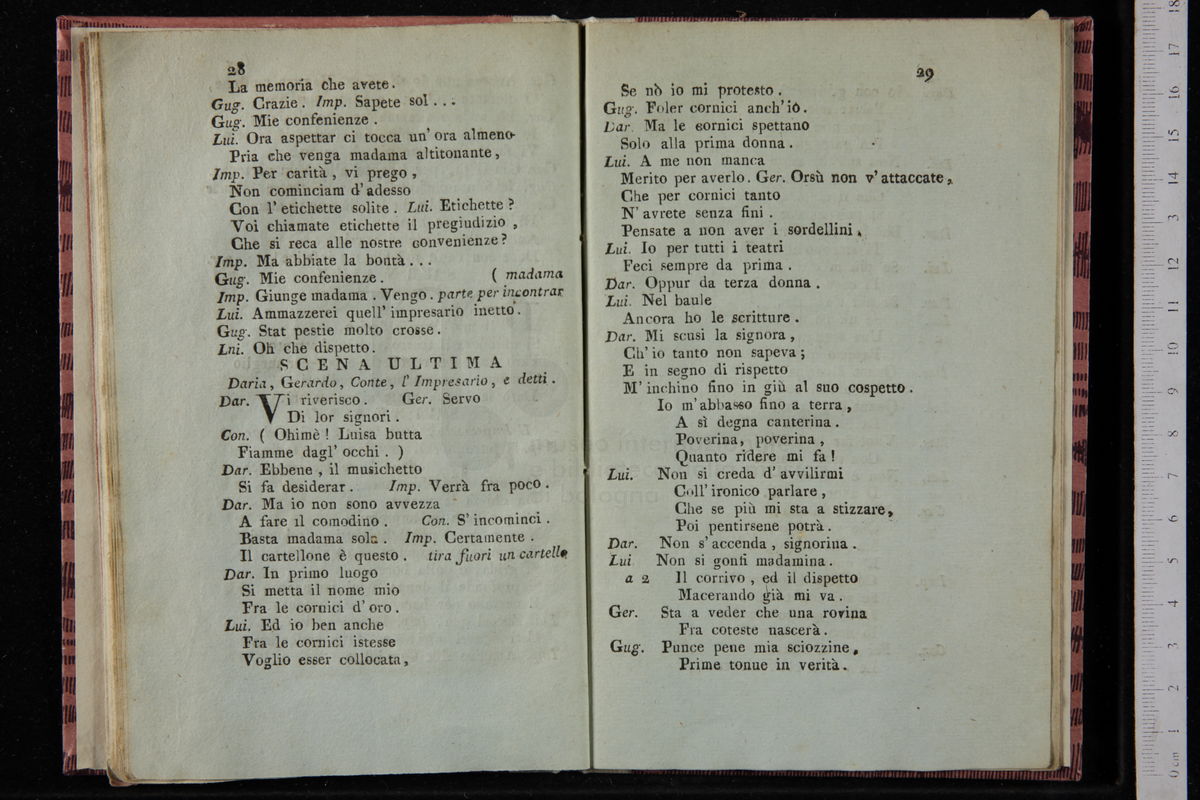 28
La memoria che avete.
Gug. Crazie. Imp. Sapete sol...
Gug. Mie confenienze.
Lui. Ora aspettar ci tocca un' ora almeno
Pria che venga madama altitonante,
Imp. Per carità, vi prego,
Non cominciam d' adesso
Con l' etichette solite. Lui. Etichette?
Voi chiamate etichette il pregiudizio,
Che si reca alle nostre convenienze?
Imp. Ma abbiate la bontà...
Gug. Mie confenienze. ( madama
Imp. Giunge madama. Vengo. parte per incontrar
Lui. Ammazzerei quell' impresario inetto.
Gug. Stat pestie molto crosse.
Lni. Oh che dispetto.
SCENA ULTIMA
Daria, Gerardo, Conte, l' Impresario, e detti.
Dar. Vi riverisco. Ger. Servo
Di lor signori.
Con. ( Ohimè! Luisa butta
Fiamme dagl' occhi. )
Dar. Ebbene, il musichetto
Si fa desiderar. Imp. Verrà fra poco.
Dar. Ma io non sono avvezza
A fare il comodino. Con. S' incominci.
Basta madama sola. Imp. Certamente.
Il cartellone è questo. tira fuori un cartello
Dar. In primo luogo
Si metta il nome mio
Fra le cornici d' oro.
Lui. Ed io ben anche
Fra le cornici istesse
Voglio esser collocata,
29
Se nò io mi protesto.
Gug. Foler cornici anch' iò.
Dar. Ma le cornici spettano
Solo alla prima donna.
Lui. A me non manca
Merito per averlo. Ger. Orsù non v' attaccate,
Che per cornici tanto
N' avrete senza fini.
Pensate a non aver i sordellini.
Lui. Io per tutti i teatri
Feci sempre da prima.
Dar. Oppur da terza donna.
Lui. Nel baule
Ancora ho le scritture.
Dar. Mi scusi la signora,
Ch' io tanto non sapeva;
E in segno di rispetto
M' inchino fino in giù al suo cospetto.
Io m' abbasso fino a terra,
A sì degna canterina.
Poverina, poverina,
Quanto ridere mi fa!
Lui. Non si creda d' avvilirmi
Coll' ironico parlare,
Che se più mi sta a stizzare,
Poi pentirsene potrà.
Dar. Non s' accenda, signorina.
Lui Non si gonfi madamina.
a 2 Il corrivo, ed il dispetto
Macerando già mi va.
Ger. Sta a veder che una rovina
Fra coteste nascerà.
Gug. Punce pene mia sciozzine,
Prime tonue in verità.